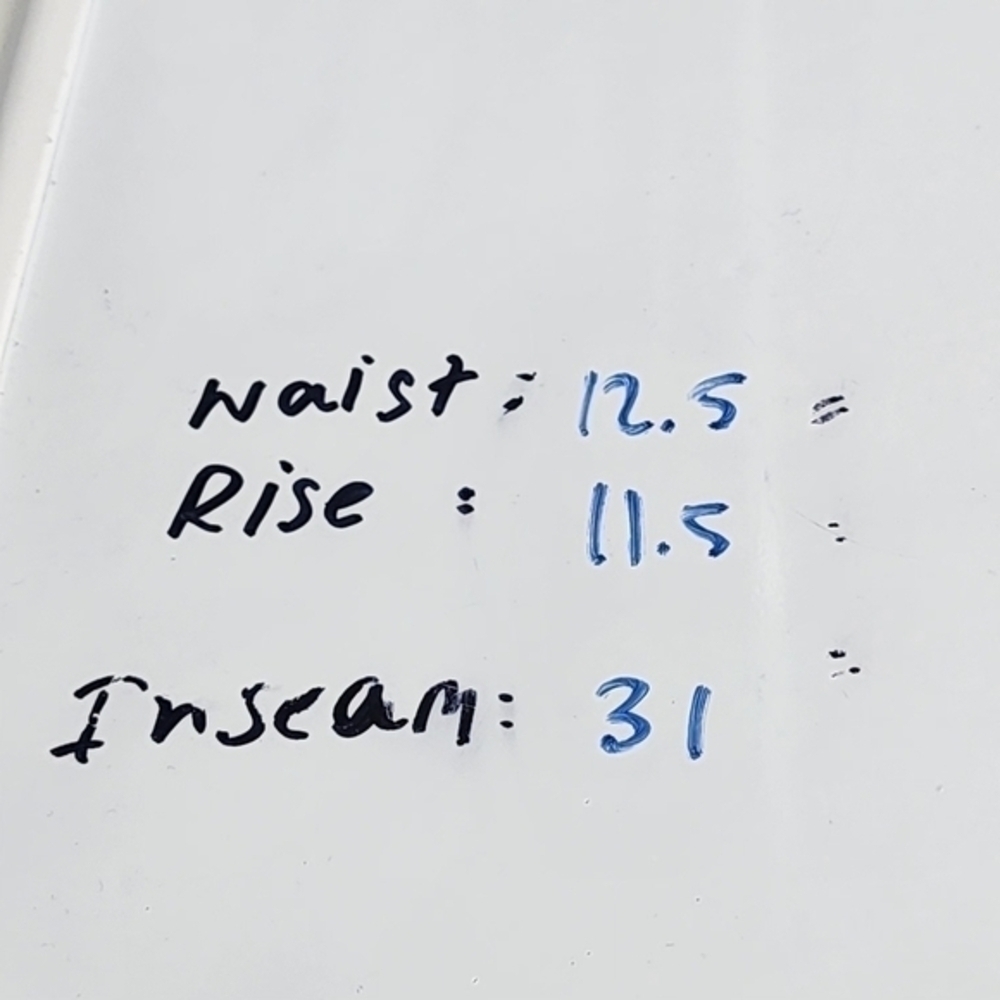 waist: 12.5 =
Rise : 11.5 :
Inseam: 31 :